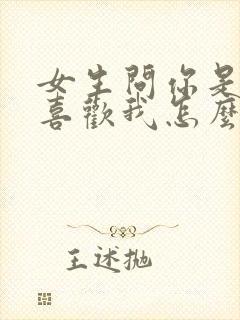 女生問你是
喜歡我怎麼
王述拋